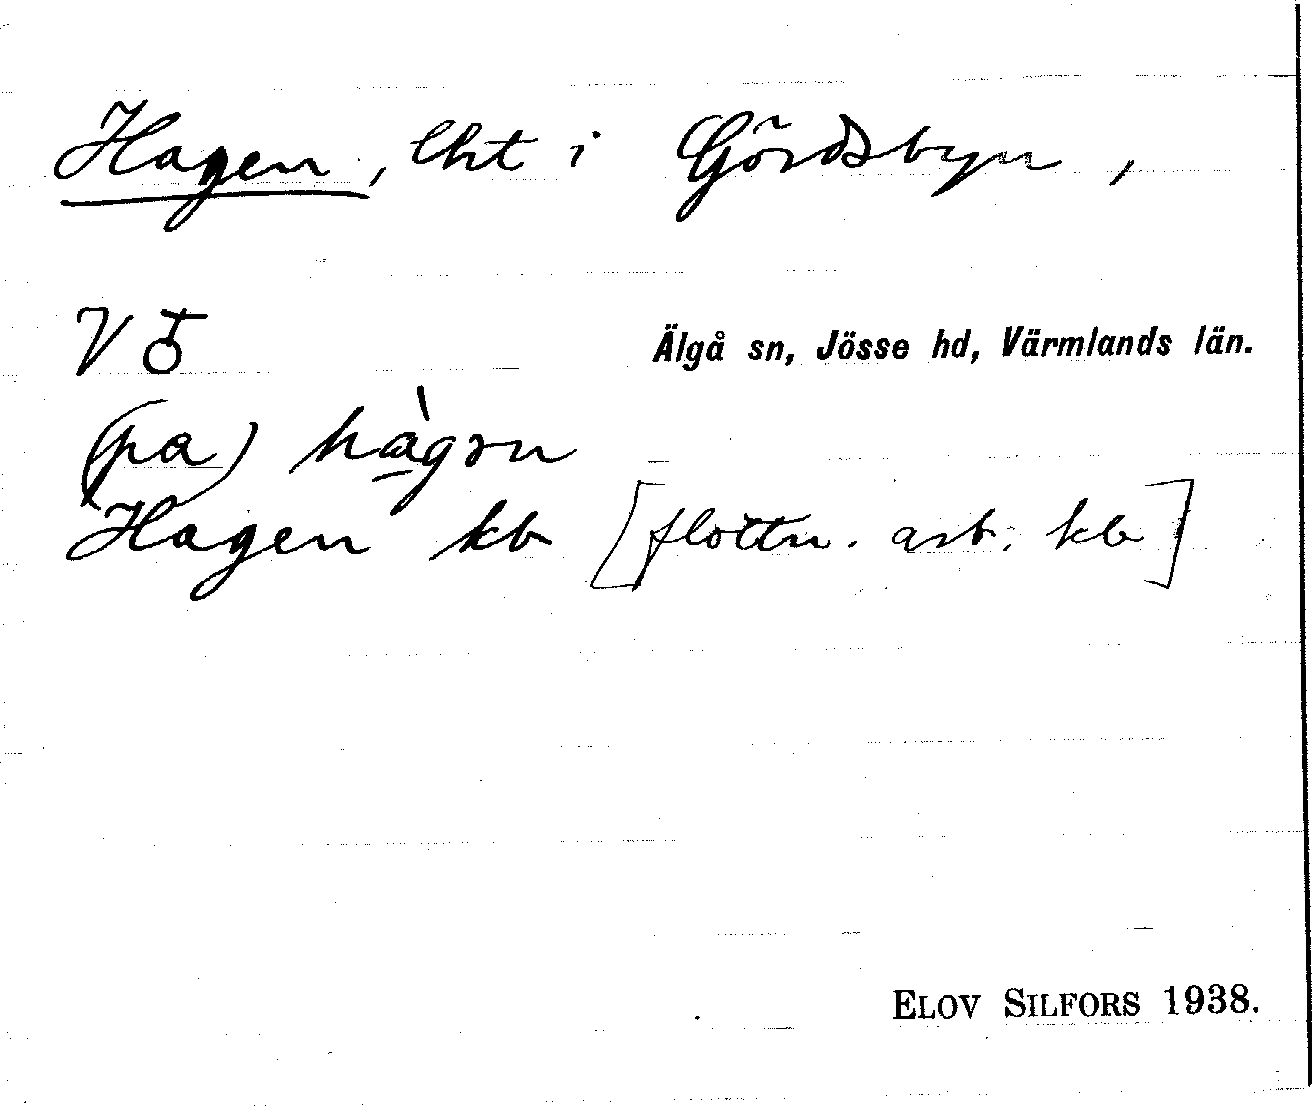 Hagen, lht i Gördsbyn,
V ♁ Älgå sn, Jösse hd, Värmlands län.
(pa) hàgɜn
Hagen kb [flottn. arb. kb]
ELOV SILFORS 1938.